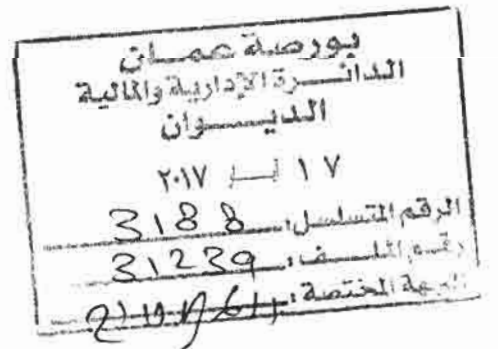 بورصة عمان
الدائرة الإدارية والمالية
الديوان
١٧ ٢٠١٧
الرقم المتسلسل: 3188
رقم الملف: 31239
الجهة المختصة: